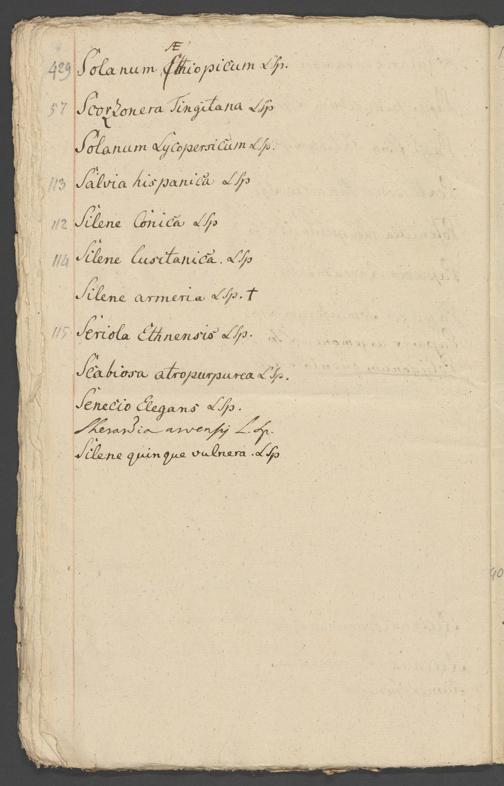 429 Solanum Æthiopicum L Sp.
57 Scorzonera Tingitana L Sp
Solanum Lycopersicum L Sp.
113 Salvia hispanica L Sp
112 Silene Conica L Sp
114 Silene lusitanica. L Sp
Silene armeria L Sp. †
115 Seriola Ethnensis L Sp.
Scabiosa atropurpurea L Sp.
Senecio Elegans L Sp.
Sherardia arvensis L. Sp.
Silene quinque vulnera. L Sp